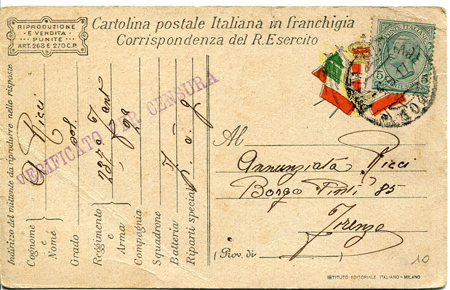 RIPRODUZIONE
E VENDITA
PUNITE
ART. 268 E 270 C.P.
Cartolina postale Italiana in franchigia
Corrispondenza del R. Esercito
VERIFICATO PER CENSURA
Indirizzo del mittente da riprodurre nelle risposte
Cognome e Nome Ricci
Grado
Reggimento e Arma fant
Compagnia 9a
Squadrone
Batteria
Riparti speciali
5 5
Al
Annunziata Ricci
Borgo Pinti 85
Firenze
(Prov. di )
10
ISTITUTO EDITORIALE ITALIANO - MILANO